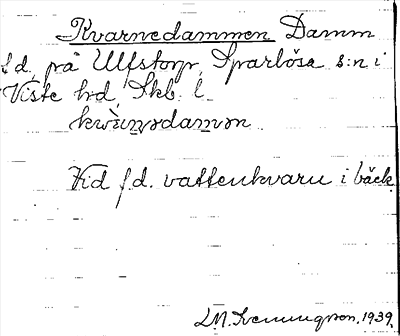 Kvarnedammen Damm
f.d. på Ulfstorp, Sparlösa s:n i
Viste hd, Skb. l.
Vid f.d. vattenkvarn i bäck.
1939.